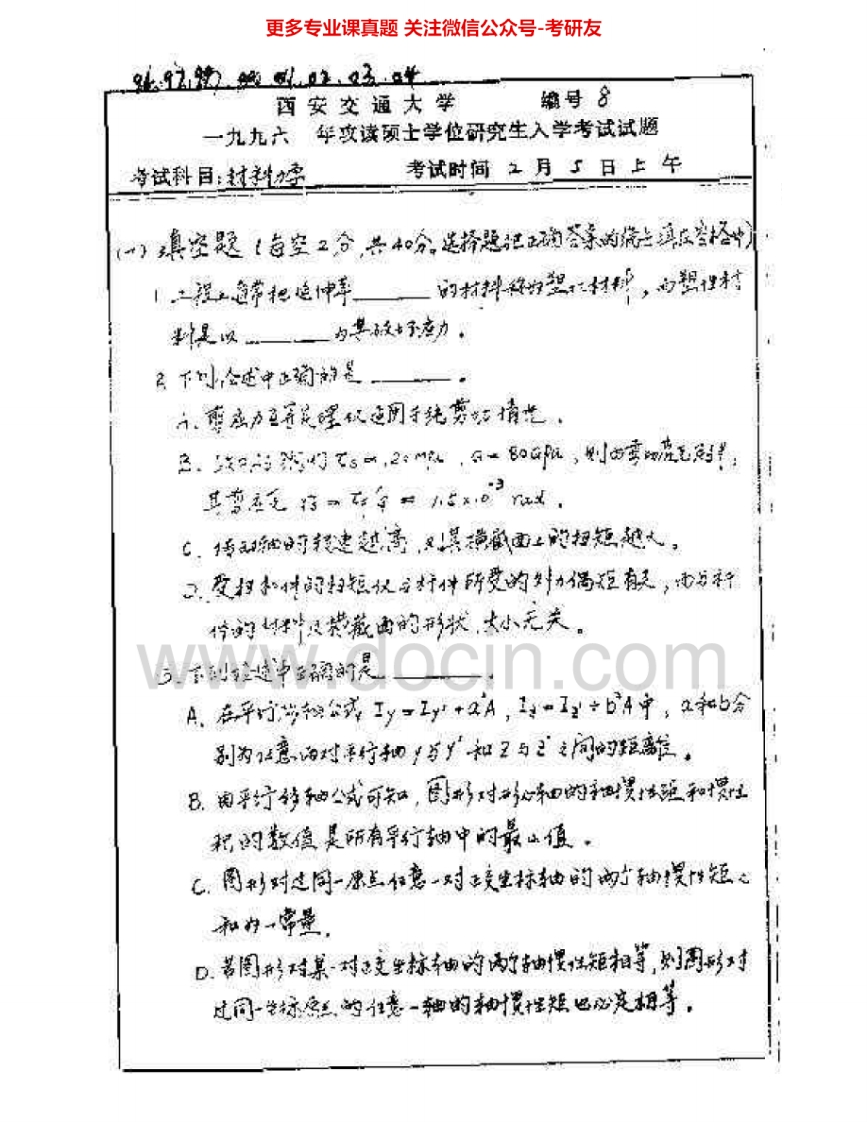 更多专业课真题 关注微信公众号-考研友
96.97.99.00 01.02.03.04
西安交通大学 编号 8
一九九六 年攻读硕士学位研究生入学考试试题
考试科目:材料力学 考试时间 2 月 5 日上午
(一) 填空题 (每空2分,共40分。选择题把正确答案的编号填在空格中)
1. 工程上通常把延伸率______的材料称为塑性材料,而塑性材
料是以______为其破坏应力。
2. 下列论述中正确的是______。
A. 剪应力互等定理仅适用于纯剪切情况。
B. G = 80GPa,
= 1.5×10⁻³ rad。
C. 传动轴的转速越高,则其横截面上的扭矩越大。
D. 受扭杆件的扭矩仅与杆件所受的外力偶矩有关,而与杆
件的材料及横截面的形状、大小无关。
www.docin.com
3. 下列论述中正确的是______。
A. 在平行移轴公式 Iy=Iy'+a²A,Iz=Iz'+b²A中,a和b分
别为任意两对平行轴 y与y'和z与z'之间的距离。
B. 由平行移轴公式可知,图形对形心轴的轴惯性矩和惯性
积的数值是所有平行轴中的最小值。
C. 图形对过同一原点任意一对正交坐标轴的两个轴惯性矩之
和为一常量。
D. 若图形对某一对正交坐标轴的两个轴惯性矩相等,则图形对
过同一坐标原点的任意一轴的轴惯性矩也必定相等。